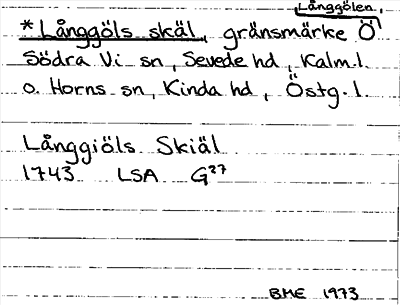 Långgölen,
*Långgöls skäl, gränsmärke Ö
Södra Vi sn, Sevede hd, Kalm.l.
o. Horns sn, Kinda hd, Östg.l.
Långgiöls Skiäl
1743 LSA G27
BME 1973